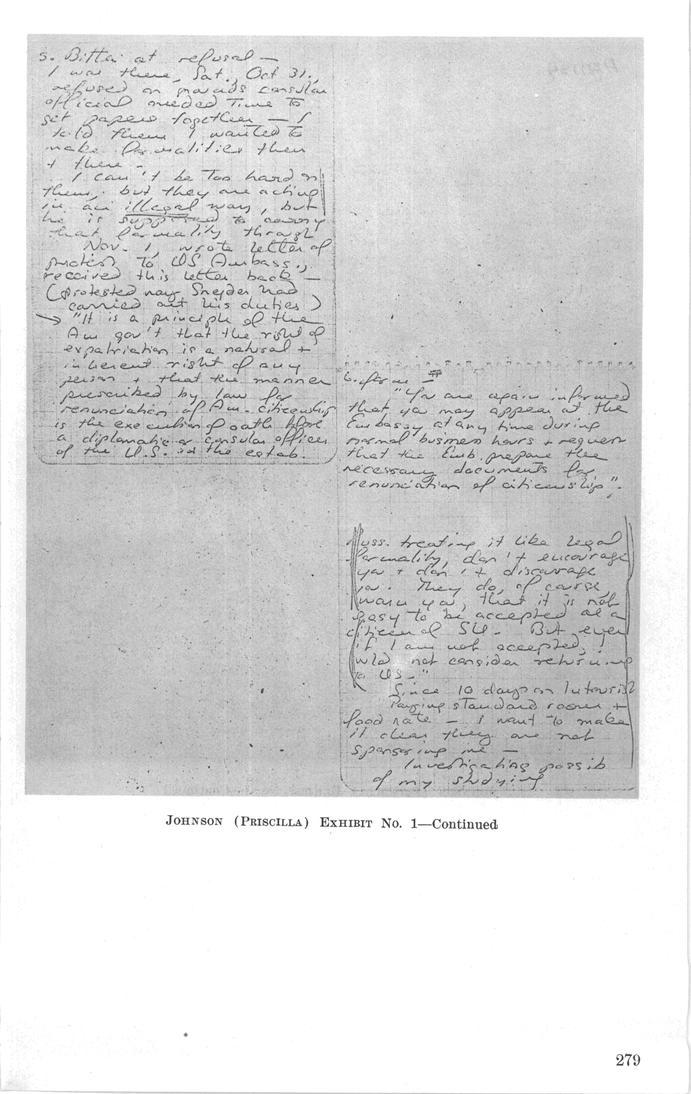 5. Bitter at refusal —
I was there, Sat., Oct 31,
refused on grounds consular
official needed time to
get papers together — I
told them I wanted to
make formalities then
+ there —
I can't be too hard on
them, but they are acting
in an illegal way, but
he is supposed to carry
that formality through
Nov. 1, wrote letter of
protest to US Ambass.,
received this letter back —
(protested way Snyder had
carried out his duties)
→ "It is a principle of the
Am gov't that the right of
expatriation is a natural +
inherent right of any
person + that the manner
prescribed by law for
renunciation of Am. citizenship
is the execution of oath before
a diplomatic or consular officer
of the U.S. in the estab.
6. form —
"You are again informed
that you may appear at the
Embassy at any time during
normal business hours + request
that the Emb. prepare the
necessary documents for
renunciation of citizenship".
Russ. treating it like legal
formality, don't encourage
you + don't discourage
you. They do, of course,
warn you, that it is not
easy to be accepted as a
citizen of SU. But even
if I am not accepted, I
wld not consider returning
to US."
Since 10 days on Intourist
Paying standard room +
food rate — I want to make
it clear they are not
sponsoring me —
Investigating possib
of my studying
JOHNSON (PRISCILLA) EXHIBIT No. 1—Continued
279